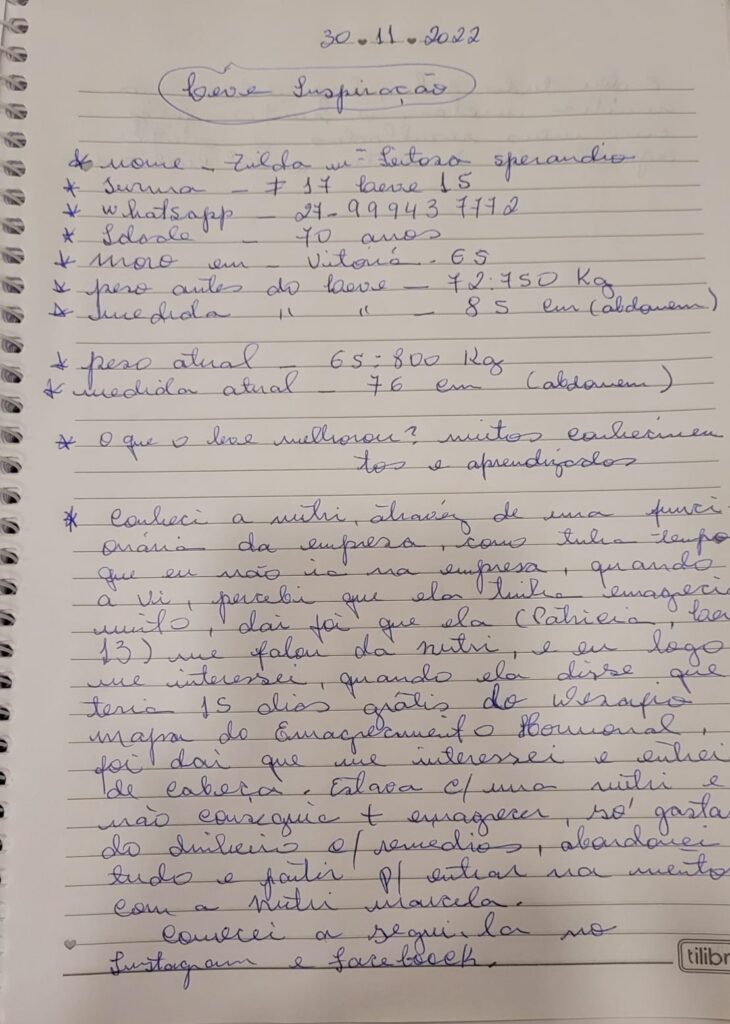 30.11.2022
Leve Inspiração
* nome - Zilda Mª Feitosa Sperandio
* Turma - # 17 Leve 15
* Whatsapp - 27-99943 7772
* Idade - 70 anos
* moro em - Vitória - ES
* peso antes do Leve - 72:750 Kg
* medida " " - 85 cm (abdomem)
* peso atual - 65:800 Kg
* medida atual - 76 cm (abdomem)
* O que o leve melhorou? muitos conhecimen
tos e aprendizados
* Conheci a nutri, através de uma funci
onária da empresa, como tinha tempo
que eu não ia na empresa, quando
a vi, percebi que ela tinha emagreci
muito, daí foi que ela (Patricia, Leve
13) me falou da nutri, e eu logo
me interessei, quando ela disse que
teria 15 dias grátis do Desafio
mapa do Emagrecimento Hormonal,
foi daí que me interessei e entrei
de cabeça. Estava c/ uma nutri e
não conseguia + emagrecer, só gasta
do dinheiro c/ remedios, abandonei
tudo e partir p/ entrar na mento
com a Nutri Marcela.
Comecei a segui-la no
Instagram e Facebook.
tilibr